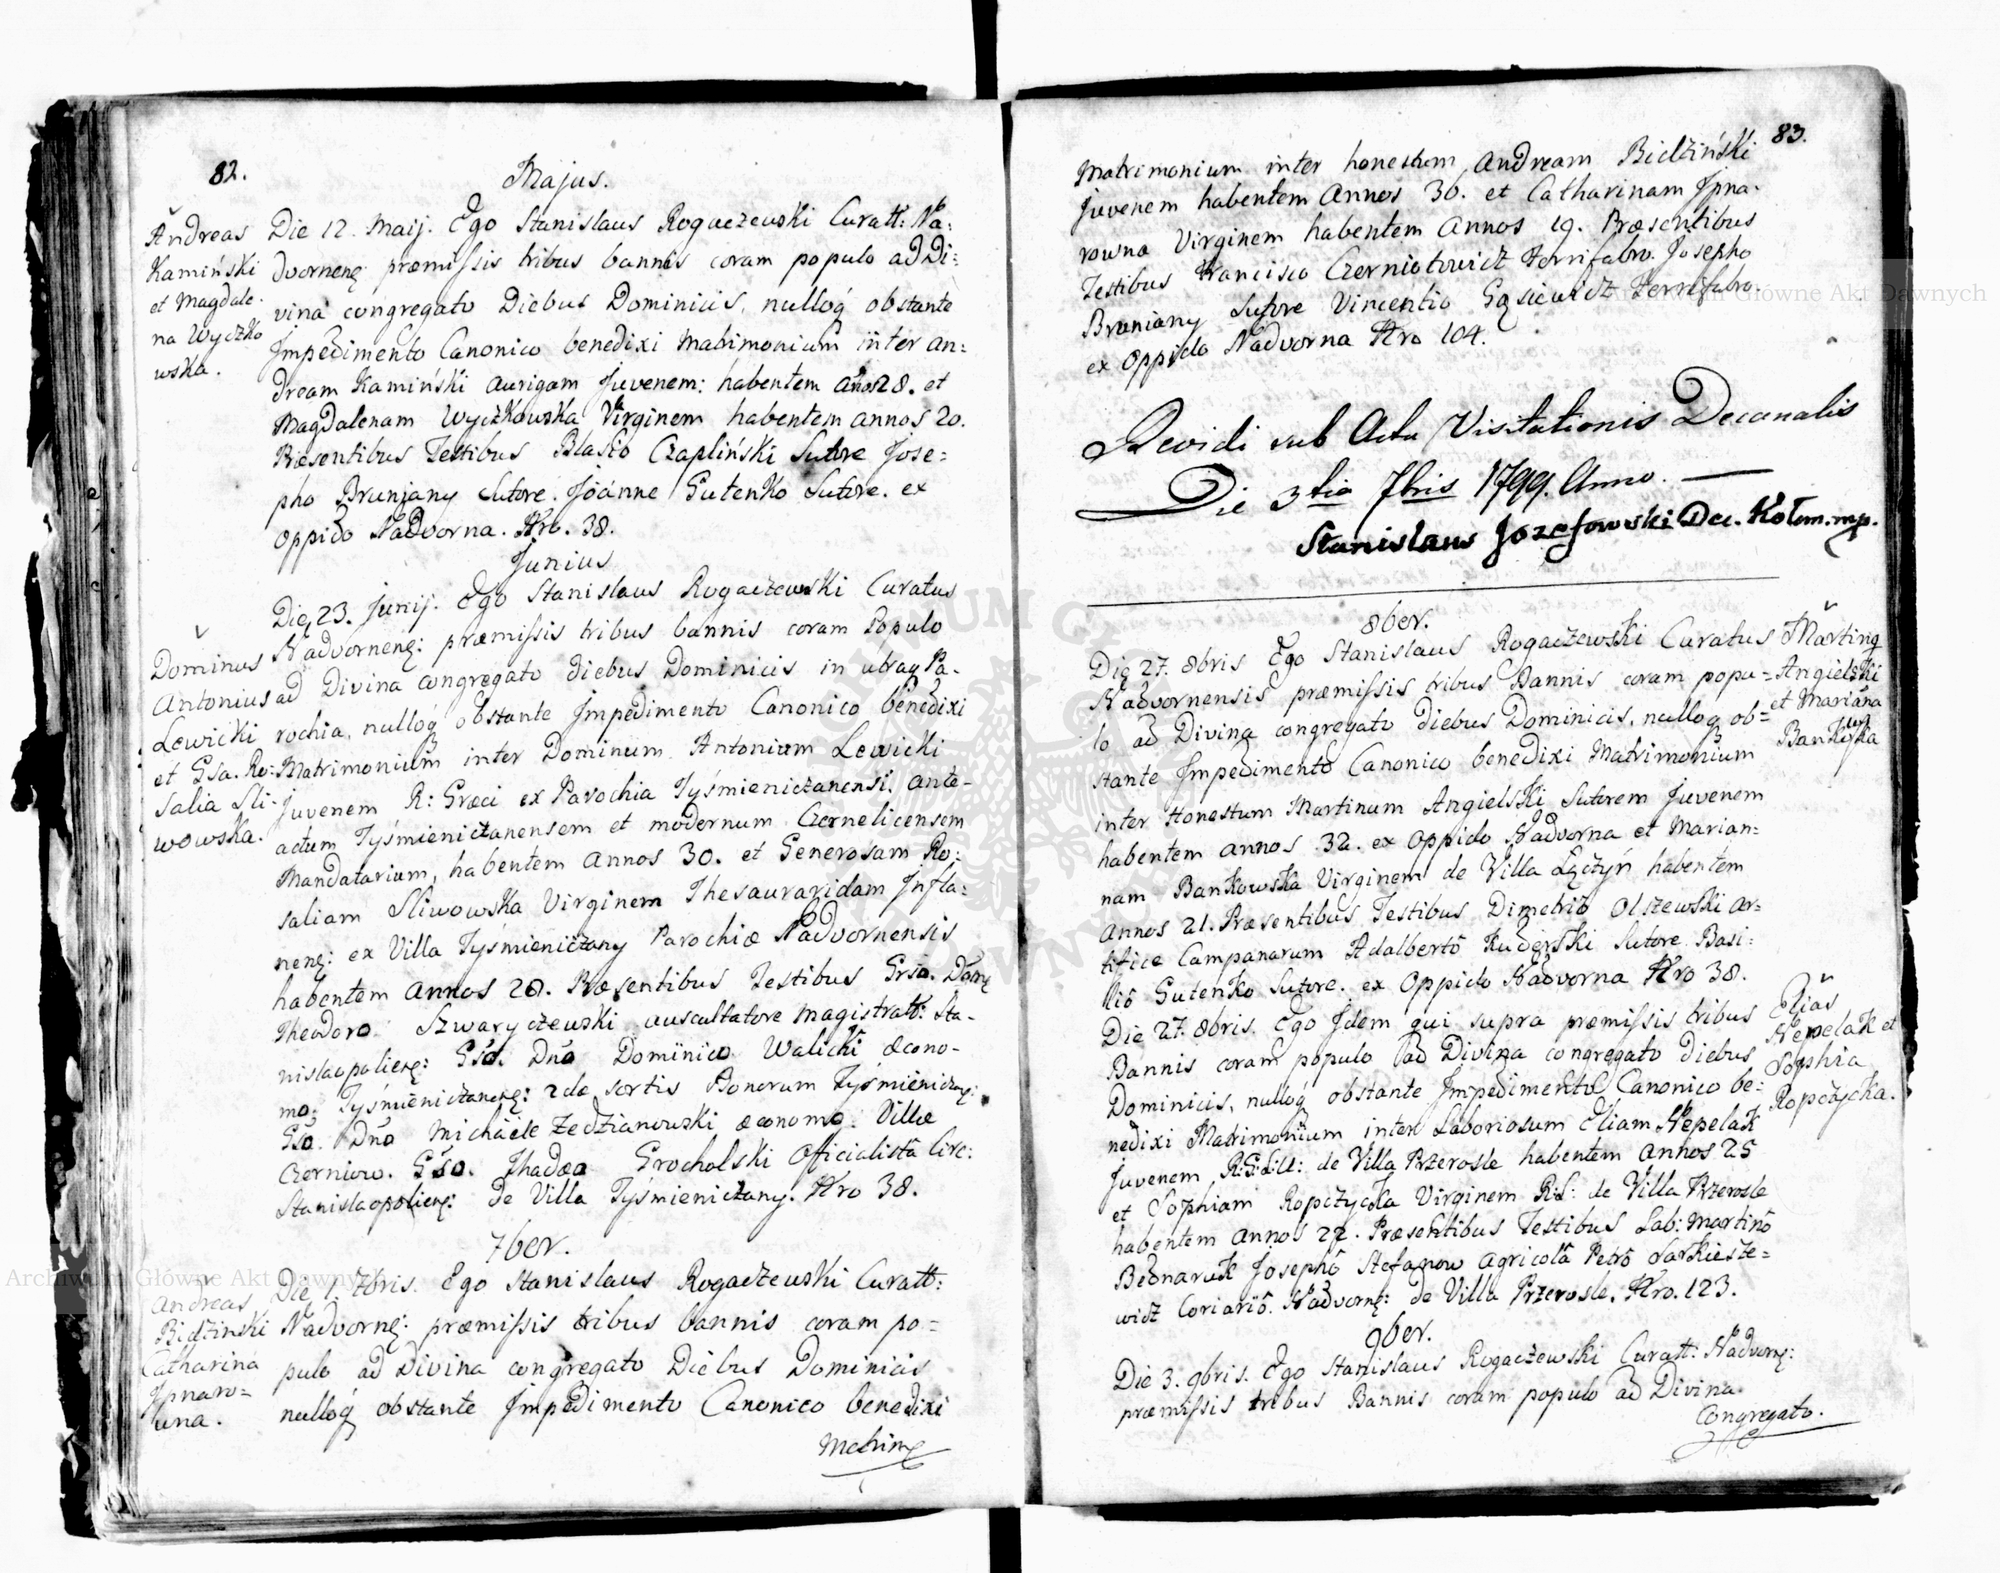 82.
Majus.
Andreas
Kamiński
et Magdale-
na Wyczko
wska.
Die 12. Maij. Ego Stanislaus Rogaczewski Curatt: Na:
dvornenę: præmissis tribus bannis coram populo ad Di:
vina congregato Diebus Dominicis, nulloq́ obstante
Impedimento Canonico benedixi Matrimonium inter An:
dream Kamiński Aurigam Juvenem: habentem años 28. et
Magdalenam Wyczkowska Virginem habentem annos 20.
Præsentibus Testibus Blasio Czapliński Sutore Jose=
pho Brunjany Sutore. Joanne Gutenko Sutore. ex
Oppido Nadvorna. Nro. 38.
Junius
Dominus
Antonius
Lewicki
et Gsa. Ro:
salia Sli-
wowska.
Die 23. Junij. Ego Stanislaus Rogaczewski Curatus
Nadvornenę: præmissis tribus bannis coram Populo
ad Divina congregato diebus Dominicis in utraq Pa-
rochia, nulloq́ obstante Impedimento Canonico benedixi
Matrimonium inter Dominum Antonium Lewicki
Juvenem R: Græci ex Parochia Tyśmieniczanensi, ante-
actum Tyśmieniczanensem et modernum Czernelicensem
Mandatarium, habentem Annos 30. et Generosam Ro:
saliam Sliwowska Virginem Thesaurazidam Infla=
nenę: ex Villa Tyśmieniczany Parochiæ Nadvornensis
habentem Annos 28. Præsentibus Testibus Grso. Dom̃
Theodoro Szwaryczewski auscultatore Magistratt: Sta-
nislaopolienę: Gso. Dño Dominico Walicki œcono-
mo. Tyśmieniczanenę: 2dæ sortis Bonorum Tyśmieniczanę:
Gso. Dño Michaele Zedzianowski œconomo Villæ
Czerniow. Gso. Thadæo Grocholski Officialista Circ:
Stanislaopolienę: de Villa Tyśmieniczany. Nro 38.
7ber.
Andreas
Bidziński
Catharina
Ipnaro=
wna.
Die 1. 7bris. Ego Stanislaus Rogaczewski Curatt:
Nadvornę: præmissis tribus bannis coram po=
pulo ad Divina congregato Diebus Dominicis
nulloq́ obstante Impedimento Canonico benedixi
Matrim̃
83.
Matrimonium inter honestum Andream Bidziński
Juvenem habentem Annos 36. et Catharinam Ipna-
rowna Virginem habentem Annos 19. Præsentibus
Testibus Francisco Czerniotowicz Ferrifabro. Josepho
Bruniany Sutore Vincentio Gąsiewicz Ferrifabro.
ex Oppido Nadvorna Nro 104.
Revidi sub Actu Visitationis Decanalis
Die 3tia 7bris 1799. Anno.
Stanislaus Jozefowski Dec. Kołom. mp.
8ber.
Die 27. 8bris Ego Stanislaus Rogaczewski Curatus
Nadvornensis præmissis tribus Bannis coram popu=
lo ad Divina congregato diebus Dominicis, nulloq ob=
stante Impedimento Canonico benedixi Matrimonium
inter Honestum Martinum Angielski Sutorem Juvenem
habentem annos 32. ex Oppido Nadvorna et Marian=
nam Bankowska Virginem de Villa Łęczyń habentem
Annos 21. Præsentibus Testibus Dimetrio Olszewski Ar=
tifice Campanarum Adalberto Kuderski Sutore Basi=
lio Gutenko Sutore. ex Oppido Nadvorna Nro 38.
Martinę
Angielski
et Mariana
Bankwska
Die 27. 8bris. Ego Idem qui supra præmissis tribus
Bannis coram populo ad Divina congregato diebus
Dominicis, nulloq obstante Impedimento Canonico be=
nedixi Matrimonium inter Laboriosum Eliam Nepelak
Juvenem R:G:L:U: de Villa Przerosle habentem Annos 25
et Sophiam Ropczycka Virginem R:L: de Villa Przerosle
habentem annos 22. Præsentibus Testibus Lab: Martino
Bednaruk Josepho Stefanow Agricola Petro Sarkisze=
wicz Coriario. Nadvornę: de Villa Przerosle. Nro. 123.
Elias
Nepelak et
Sophia
Ropczycka.
9ber.
Die 3. 9bris. Ego Stanislaus Rogaczewski Curatt: Nadvornę:
præmissis tribus Bannis coram populo ad Divina
Congregato.
Archiwum Główne Akt Dawnych
Archiwum Główne Akt Dawnych
ARCHIWUM GŁÓWNE AKT DAWNYCH